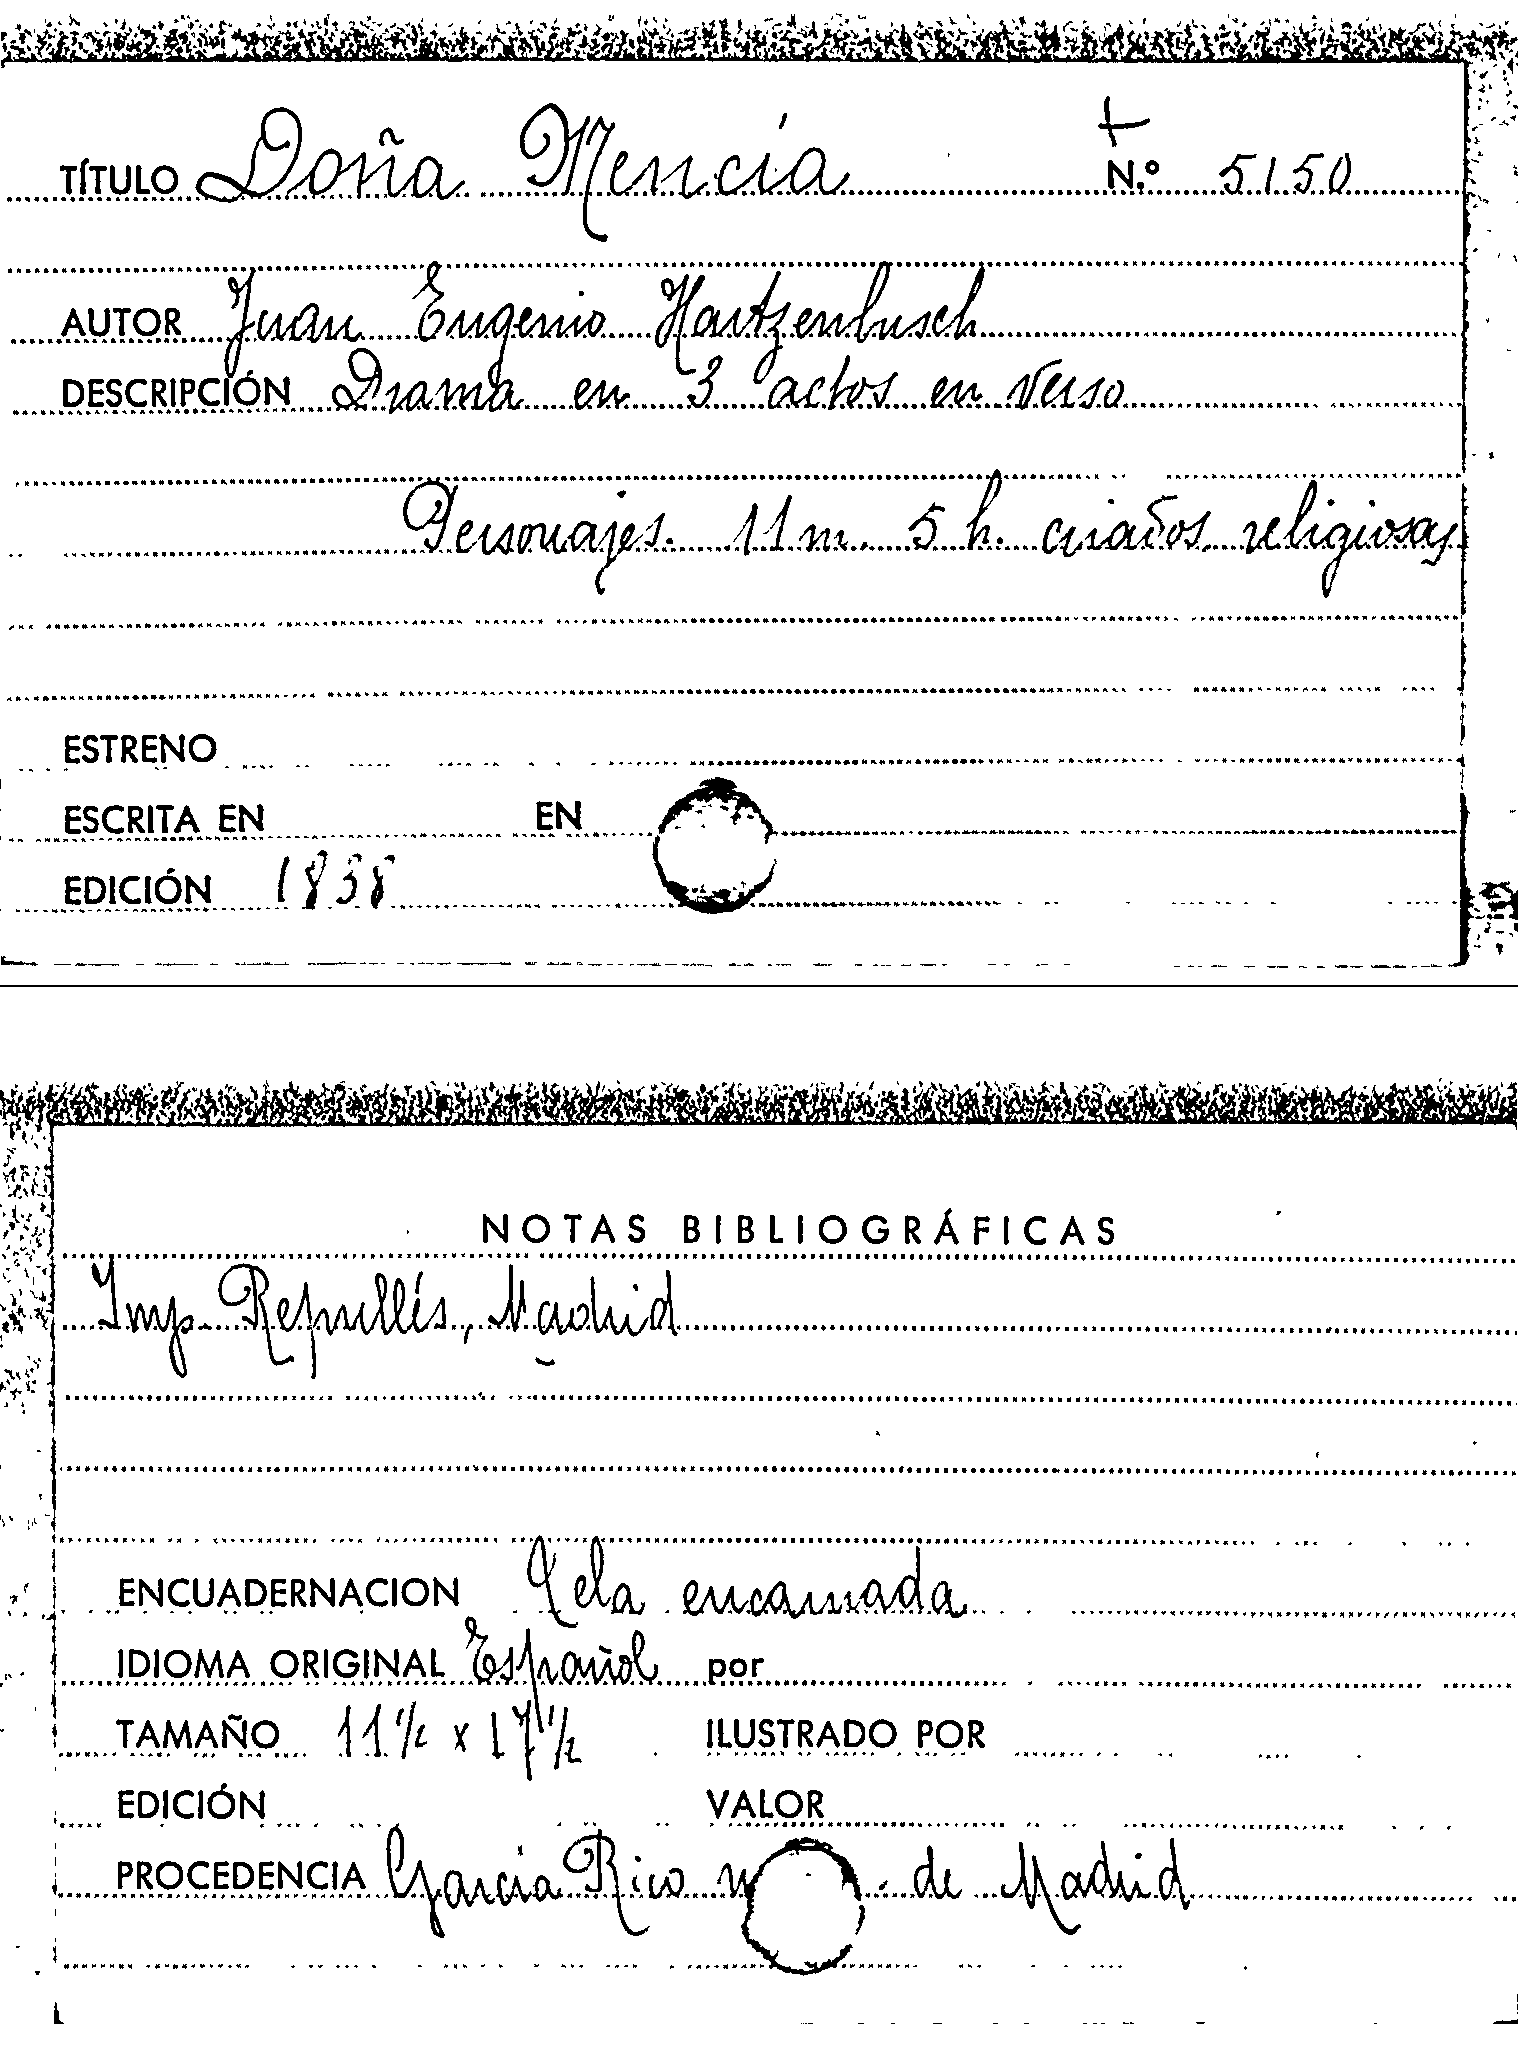 TÍTULO Doña Mencía N.º 5150
AUTOR Juan Eugenio Hartzenbusch
DESCRIPCIÓN Drama en 3 actos en verso
Personajes. 11 m. 5 h. criados, religiosas
ESTRENO
ESCRITA EN EN
EDICIÓN 1838
NOTAS BIBLIOGRÁFICAS
Imp. Repullés, Madrid
ENCUADERNACION Tela encarnada
IDIOMA ORIGINAL Español por
TAMAÑO 11 1/2 x 17 1/2 ILUSTRADO POR
EDICIÓN VALOR
PROCEDENCIA García Rico de Madrid